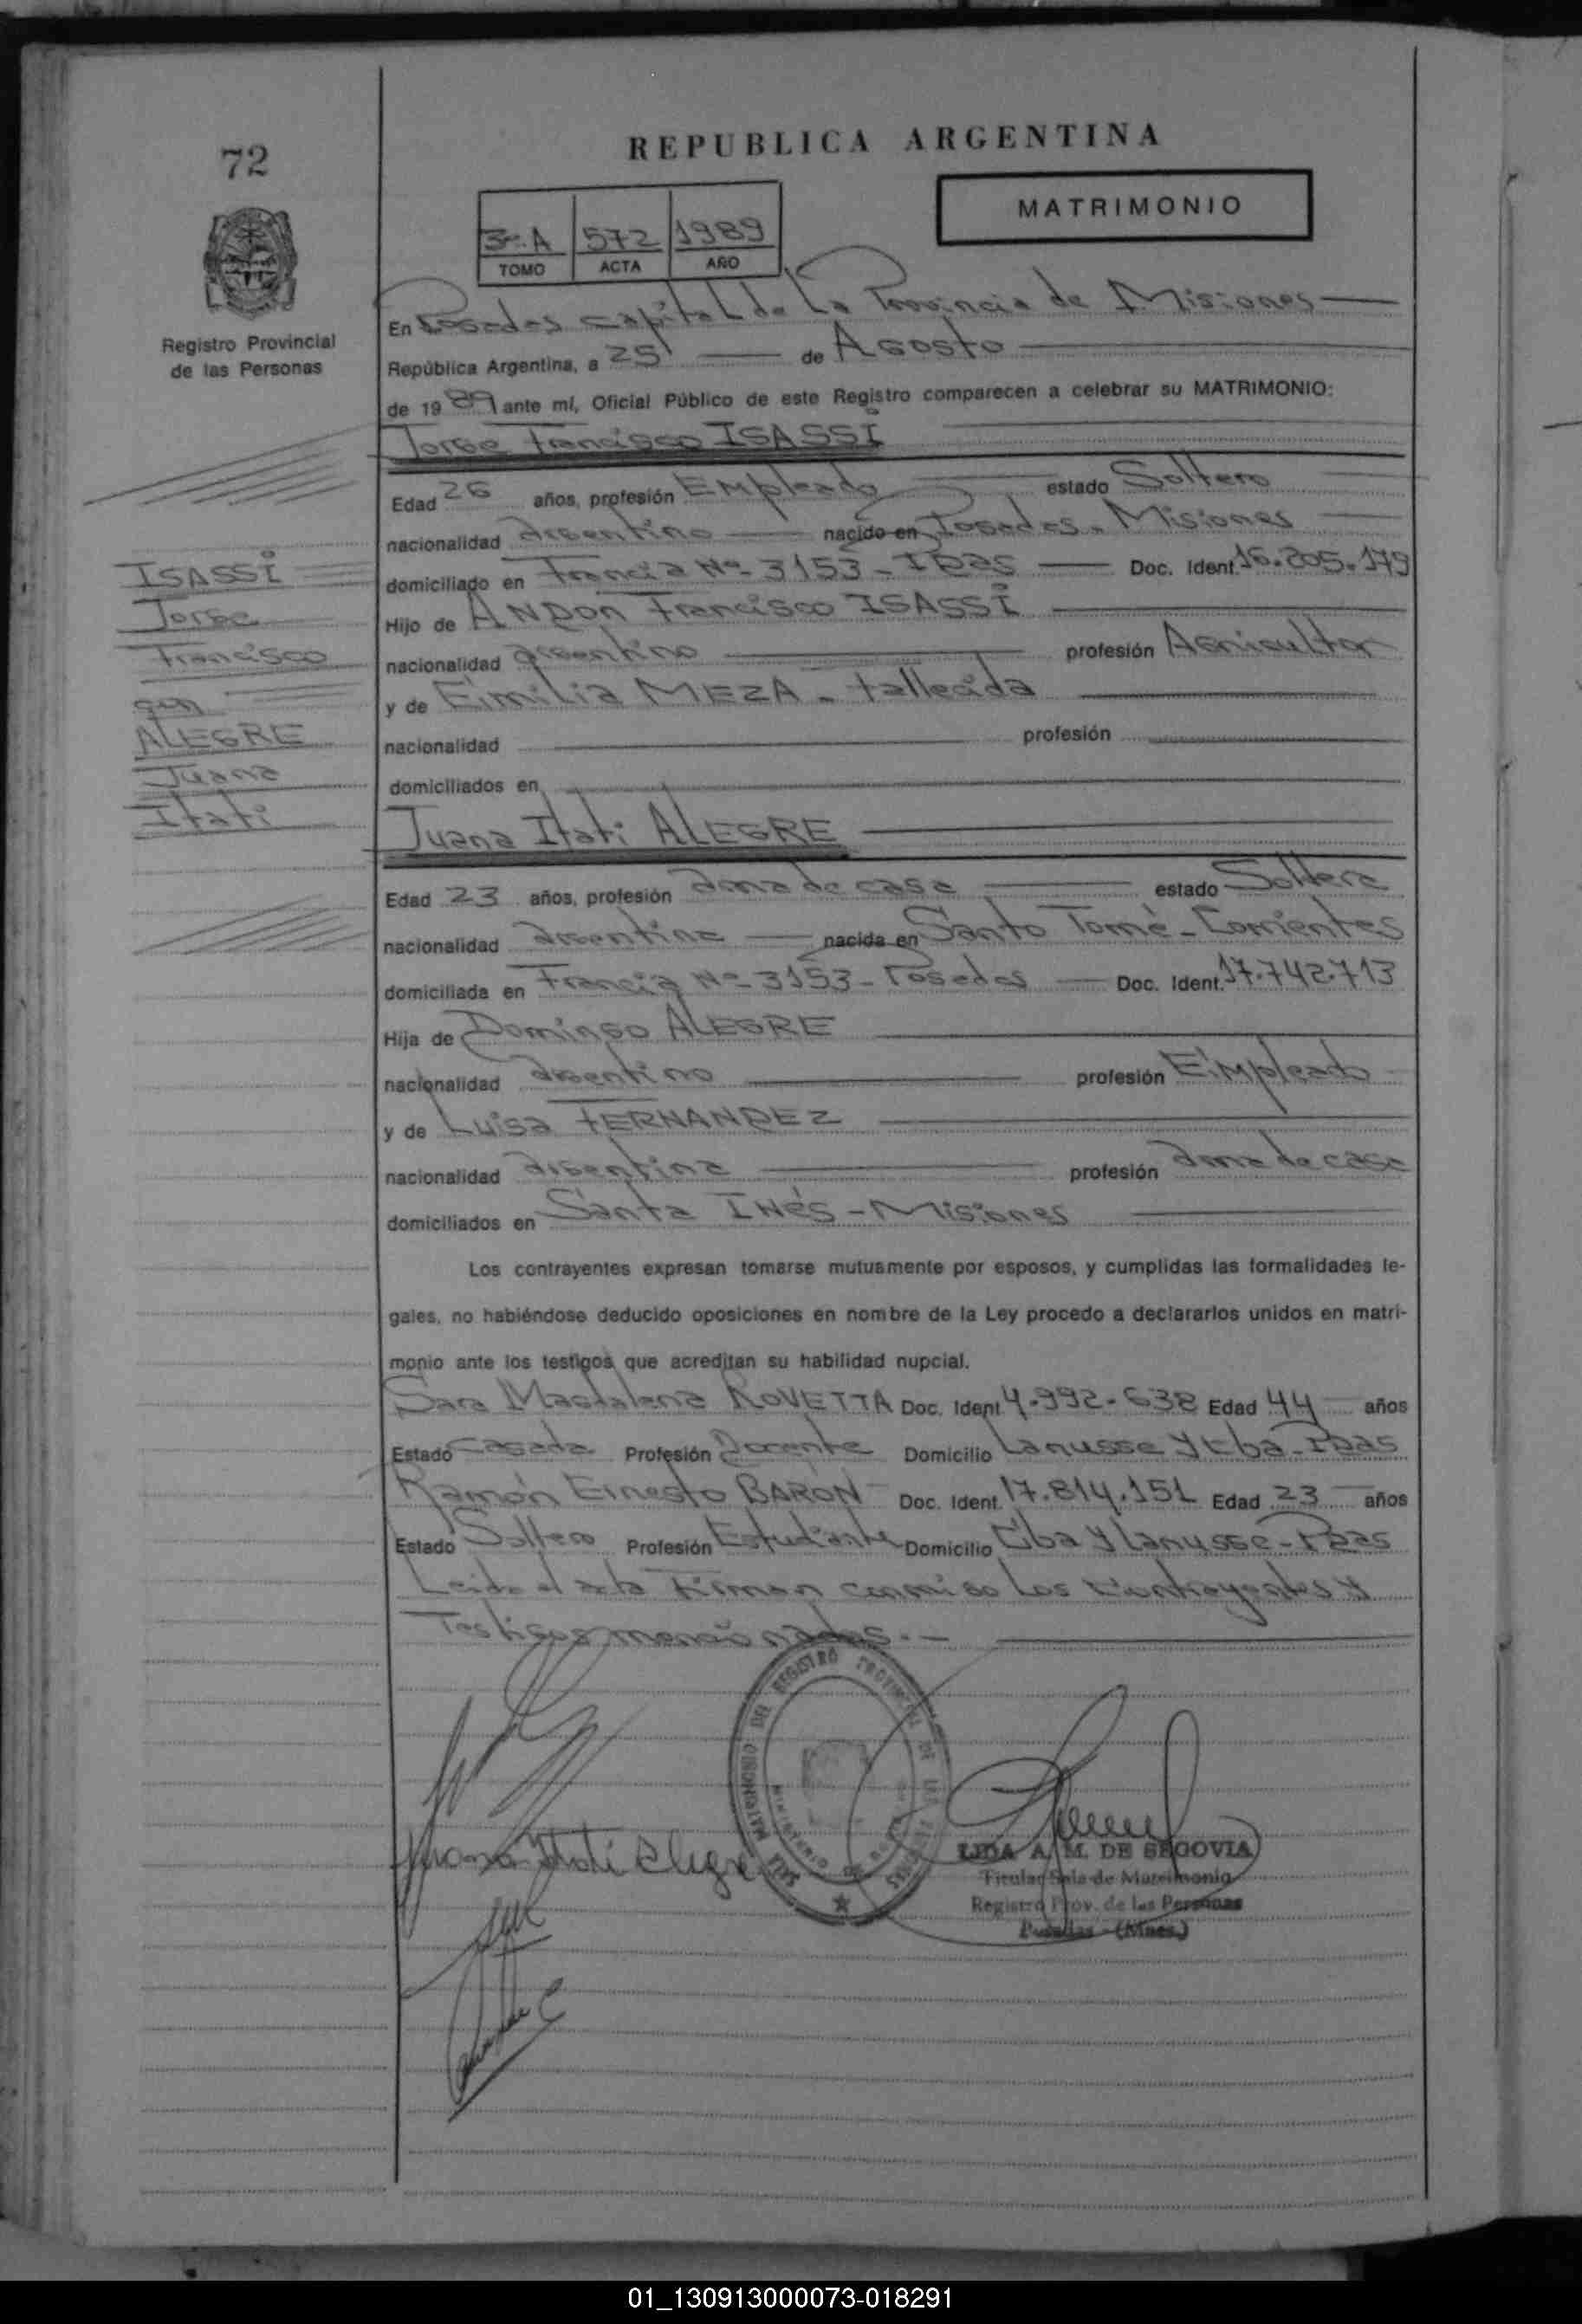 72
REPUBLICA ARGENTINA
MATRIMONIO
3º A 572 1989
TOMO ACTA AÑO
Registro Provincial
de las Personas
En Posadas capital de La Provincia de Misiones
República Argentina, a 25 de Agosto
de 1989 ante mí, Oficial Público de este Registro comparecen a celebrar su MATRIMONIO:
Jorge Francisco ISASSI
Edad 26 años, profesión Empleado estado Soltero
nacionalidad argentino nacido en Posadas - Misiones
domiciliado en Francia Nº 3153 - Pdas Doc. Ident. 16.805.179
Hijo de Francisco ISASSI
nacionalidad argentino profesión Agricultor
y de Emilia MEZA - fallecida
nacionalidad profesión
domiciliados en
ISASSI
Jorge
Francisco
con
ALEGRE
Juana
Itati
Juana Itati ALEGRE
Edad 23 años, profesión ama de casa estado Soltera
nacionalidad argentina nacida en Santo Tomé - Corrientes
domiciliada en Francia Nº 3153 - Posadas Doc. Ident. 17.742.713
Hija de Domingo ALEGRE
nacionalidad argentino profesión Empleado
y de Luisa FERNANDEZ
nacionalidad argentina profesión ama de casa
domiciliados en Santa INés - Misiones
Los contrayentes expresan tomarse mutuamente por esposos, y cumplidas las formalidades le-
gales, no habiéndose deducido oposiciones en nombre de la Ley procedo a declararlos unidos en matri-
monio ante los testigos que acreditan su habilidad nupcial.
Sara Magdalena ROVETTA Doc. Ident 4.992.638 Edad 44 años
Estado casada Profesión Docente Domicilio Lanusse y Cba - Pdas
Ramón Ernesto BARÓN Doc. Ident. 17.814.151 Edad 23 años
Estado Soltero Profesión Estudiante Domicilio Cba y Lanusse - Pdas
Leida el acta Firman conmigo Los contrayentes y
Testigos mencionados.-
Juana Itati Alegre
LIDA A. M. DE SEGOVIA
Titular Sala de Matrimonio
Registro Prov. de las Personas
Posadas - (Mnes.)
01_130913000073-018291